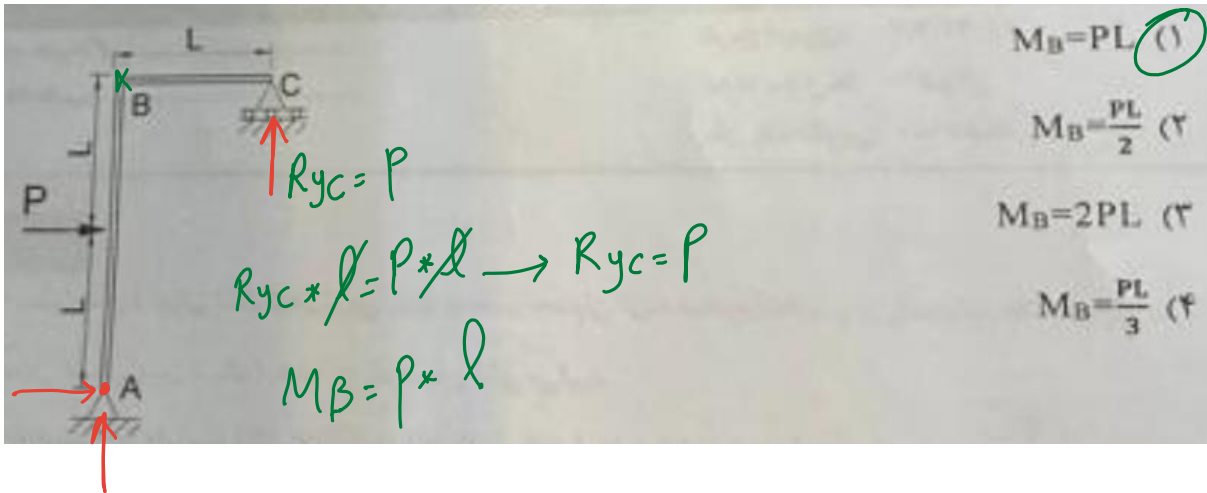 L
C
B
L
P
L
A
RyC = P
RyC * l = P * l → RyC = P
MB = P * l
M_B=PL (۱
M_B=PL/2 (۲
M_B=2PL (۳
M_B=PL/3 (۴